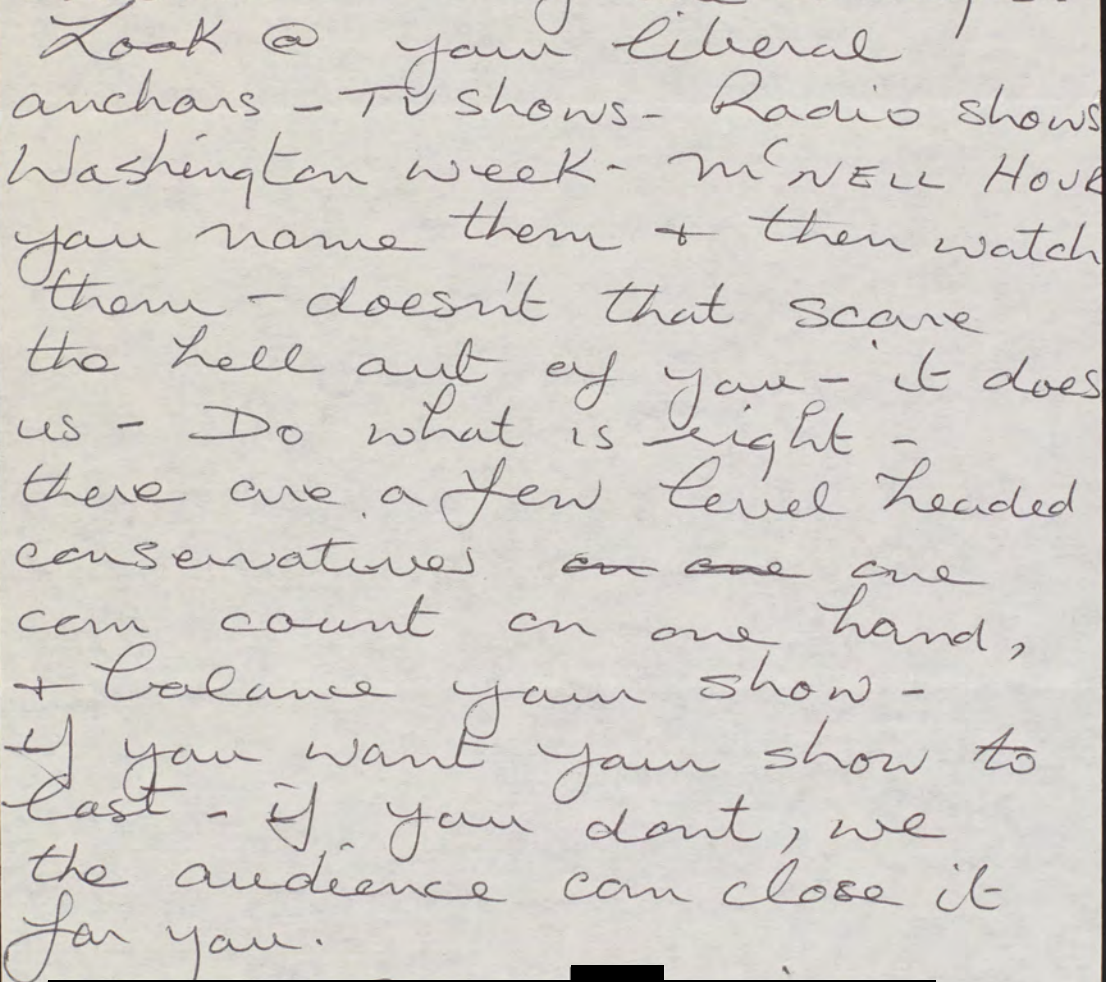 Look @ your liberal
anchors - TV shows - Radio shows
Washington week - McNELL HOUR
you name them + then watch
them - doesn't that scare
the hell out of you - it does
us - Do what is right -
there are a few level headed
conservatives on one one
can count on one hand,
+ balance your show -
If you want your show to
last - if you dont, we
the audience can close it
for you.